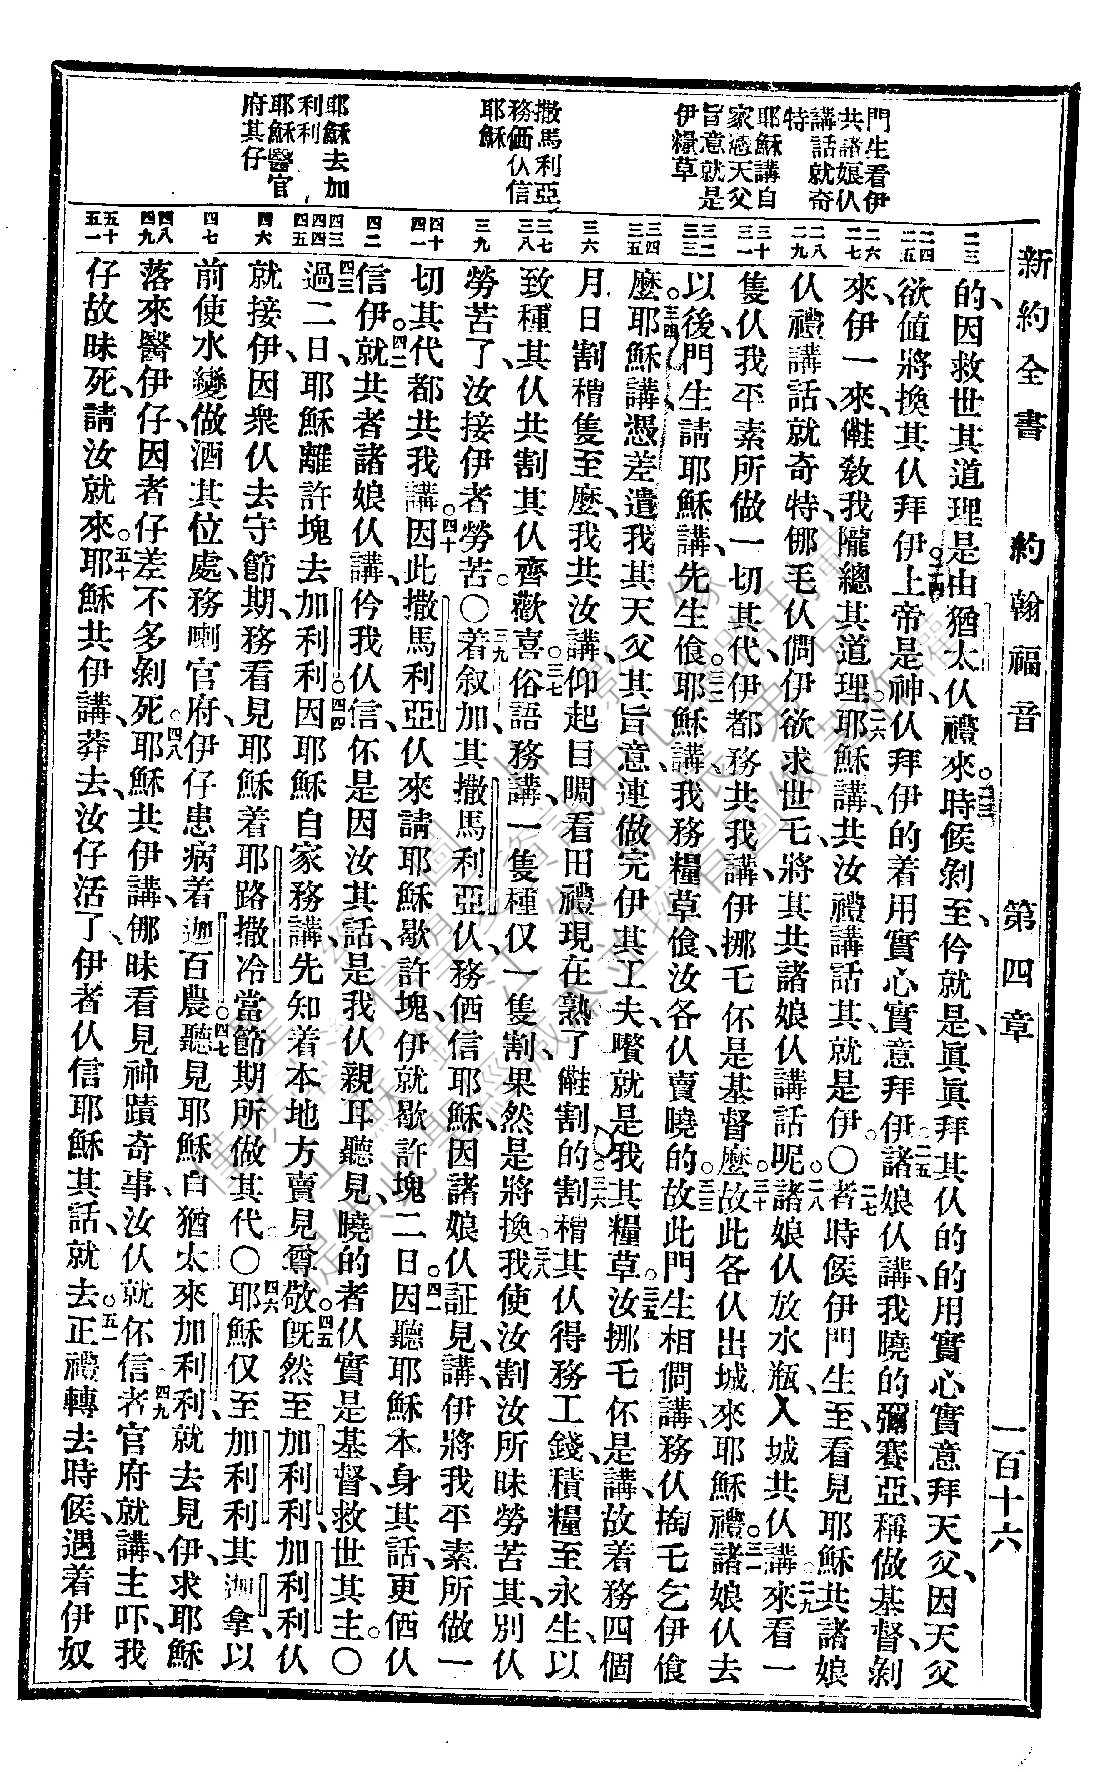 新約全書 約翰福音 第四章 一百十六
門生看伊
共諸娘仈
講話就奇
特
耶穌講自
家遵天父
旨意就是
伊糧草
撒馬利亞
務価仈信
耶穌
耶穌去加
利利
耶穌醫官
府其仔
二三
二四
二五
二六
二七
二八
二九
三十
三一
三二
三三
三四
三五
三六
三七
三八
三九
四十
四一
四二
四三
四四
四五
四六
四七
四八
四九
五十
五一
的、因救世其道理是由猶太仈禮來。二三時候剝至、仱就是、眞眞拜其仈的的用實心實意拜天父、因天父
欲值將換其仈拜伊。二四上帝是神、仈拜伊的着用實心實意拜伊。二五諸娘仈講、我曉的彌賽亞、稱做基督、剝
來、伊一來、儺教我隴總其道理。二六耶穌講、共汝禮講話其、就是伊。〇二七者時候伊門生至、看見耶穌共諸娘
仈禮講話、就奇特、哪毛仈僩伊欲求世乇、將其共諸娘仈講話呢。二八諸娘仈放水瓶、入城共仈講、二九來看一
隻仈、我平素所做一切其代、伊都務共我講、伊挪乇伓是基督麽。三十故此各仈出城、來耶穌禮。三一諸娘仈去
以後、門生請耶穌講、先生飡。三二耶穌講、我務糧草飡、汝各仈賣曉的。三三故此門生相僩講、務仈掏乇乞伊飡
麽。三四耶穌講、憑差遣我其天父其旨意、連做完伊其工夫、嚽就是我其糧草。三五汝挪乇伓是講、故着務四個
月日割𥝟隻至麽、我共汝講、仰起目睭看田禮、現在熟了、儺割的。三六割𥝟其仈得務工錢、積糧至永生、以
致種其仈共割其仈齊歡喜。三七俗語務講、一隻種、仅一隻割、果然是將換。三八我使汝割汝所昧勞苦其、別仈
勞苦了、汝接伊者勞苦。〇三九着叙加其撒馬利亞仈、務価信耶穌、因諸娘仈証見、講、伊將我平素所做一
切其代都共我講。四十因此撒馬利亞仈來請耶穌歇許塊、伊就歇許塊二日。四一因聽耶穌本身其話、更価仈
信伊。四二就共者諸娘仈講、仱我仈信、伓是因汝其話、是我仈親耳聽見、曉的者仈實是基督、救世其主。〇
四三過二日、耶穌離許塊去加利利。四四因耶穌自家務講、先知着本地方賣見尊敬。四五旣然至加利利、加利利仈
就接伊、因衆仈去守節期、務看見耶穌着耶路撒冷當節期所做其代。〇四六耶穌仅至加利利其迦拿、以
前使水變做酒其位處、務喇官府、伊仔患病着迦百農。四七聽見耶穌自猶太來加利利、就去見伊、求耶穌
落來醫伊仔、因者仔差不多剝死。四八耶穌共伊講、哪昧看見神蹟奇事、汝仈就伓信。四九者官府就講、主吓、我
仔故昧死、請汝就來。五十耶穌共伊講、莽去、汝仔活了、伊者仈信耶穌其話、就去。五一正禮轉去時候、遇着伊奴